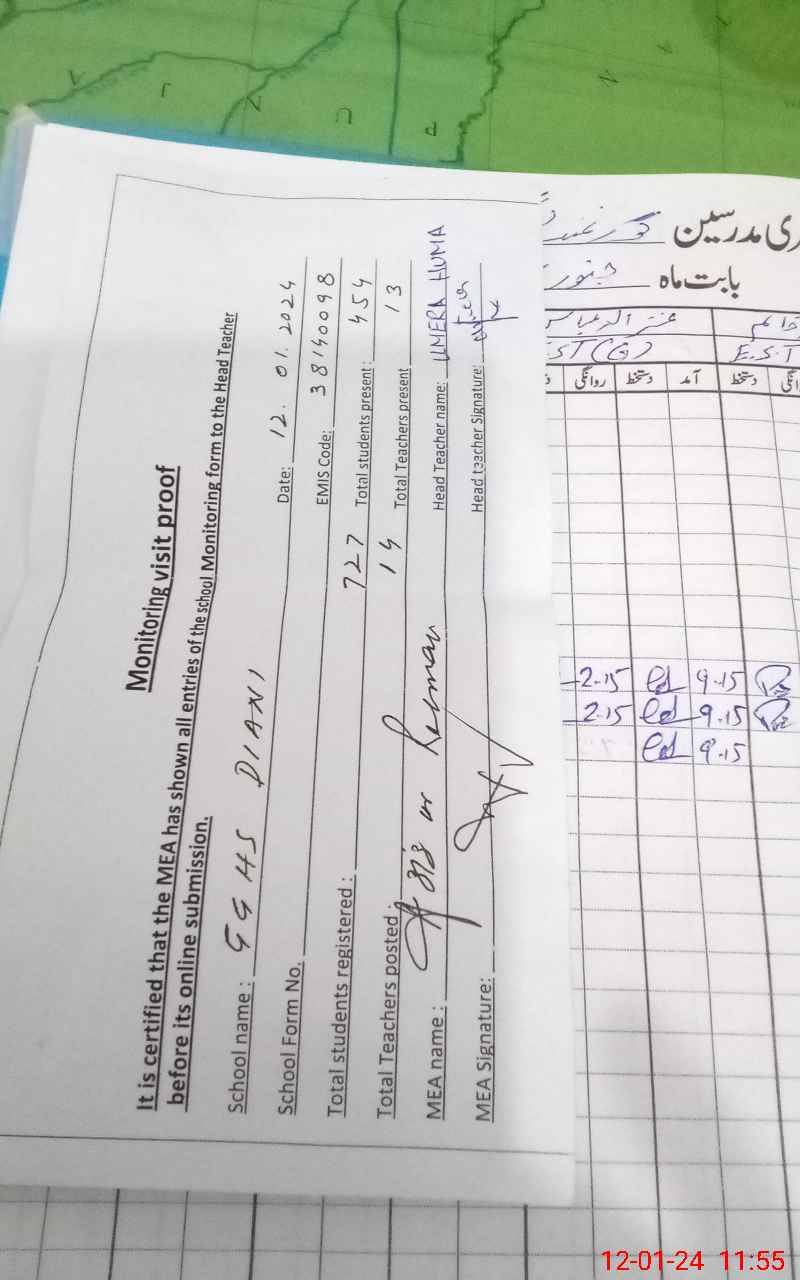 Monitoring visit proof
It is certified that the MEA has shown all entries of the school Monitoring form to the Head Teacher
before its online submission.
School name : GGHS DIANI
School Form No. Date: 12.01.2024
EMIS Code: 38140098
Total students registered : 727 Total students present : 454
Total Teachers posted : 14 Total Teachers present 13
MEA name : ur Rehman Head Teacher name: UMERA HUMA
MEA Signature: Head teacher Signature:
ری مدرسین گورنمنٹ
بابت ماہ جنوری
روانگی دستخط آمد دستخط
2.15 9.15
2.15 9.15
9.15
12-01-24 11:55